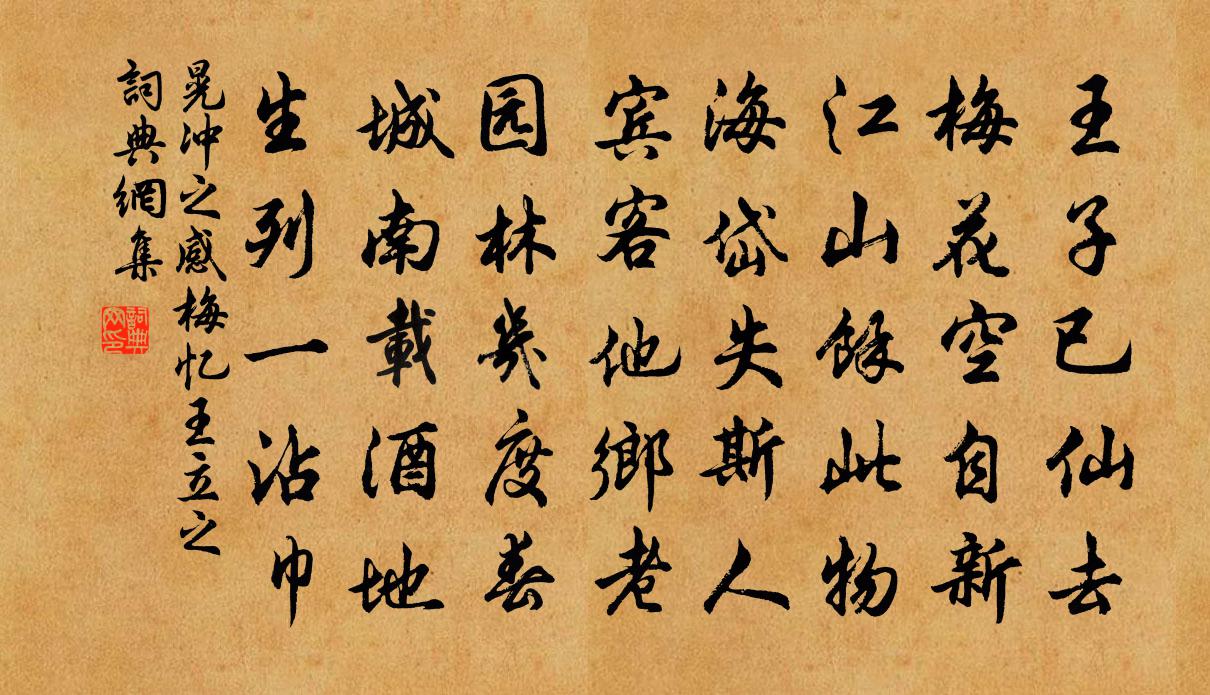 王子已仙去
梅花空自新
江山餘此物
海岱失斯人
宾客他鄉老
园林幾度春
城南載酒地
生列一沾巾
晃冲之感梅忆王立之
詞典網集
詞典網印